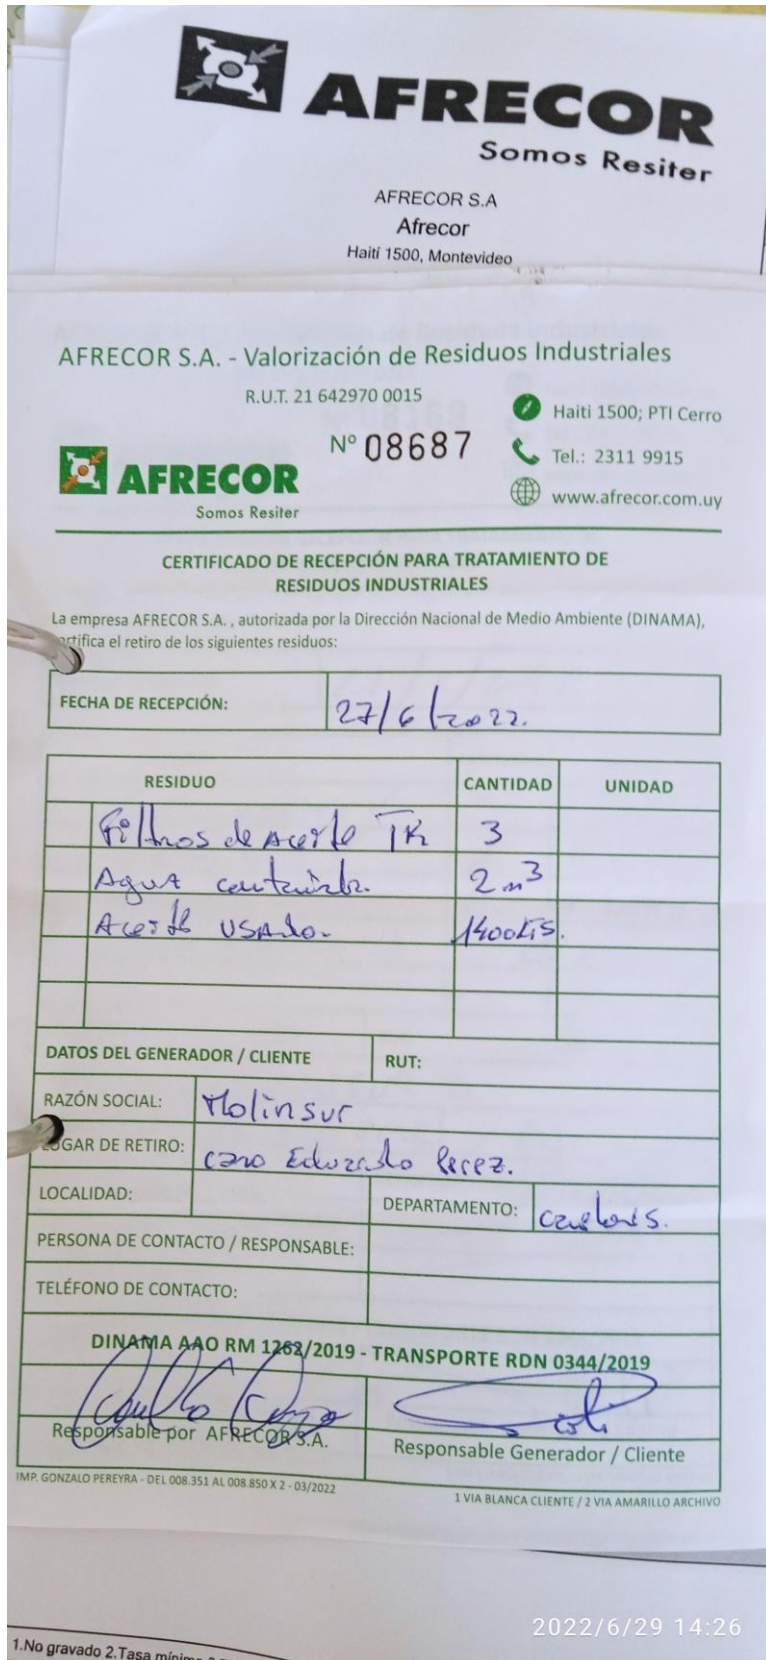 AFRECOR
Somos Resiter
AFRECOR S.A
Afrecor
Haití 1500, Montevideo
AFRECOR S.A. - Valorización de Residuos Industriales
R.U.T. 21 642970 0015
Haiti 1500; PTI Cerro
Nº 08687
Tel.: 2311 9915
AFRECOR
www.afrecor.com.uy
Somos Resiter
CERTIFICADO DE RECEPCIÓN PARA TRATAMIENTO DE
RESIDUOS INDUSTRIALES
La empresa AFRECOR S.A. , autorizada por la Dirección Nacional de Medio Ambiente (DINAMA),
certifica el retiro de los siguientes residuos:
FECHA DE RECEPCIÓN: 27/6/2022.
RESIDUO CANTIDAD UNIDAD
Filtros de Aceite TK 3
Agua 2 m3
Aceite USAdo. 1400 LTS.
DATOS DEL GENERADOR / CLIENTE RUT:
RAZÓN SOCIAL: Molinsur
LUGAR DE RETIRO: Eduardo Perez.
LOCALIDAD: DEPARTAMENTO:
PERSONA DE CONTACTO / RESPONSABLE:
TELÉFONO DE CONTACTO:
DINAMA AAO RM 1262/2019 - TRANSPORTE RDN 0344/2019
Responsable por AFRECOR S.A. Responsable Generador / Cliente
IMP. GONZALO PEREYRA - DEL 008.351 AL 008.850 X 2 - 03/2022
1 VIA BLANCA CLIENTE / 2 VIA AMARILLO ARCHIVO
2022/6/29 14:26
1.No gravado 2.Tasa mínima